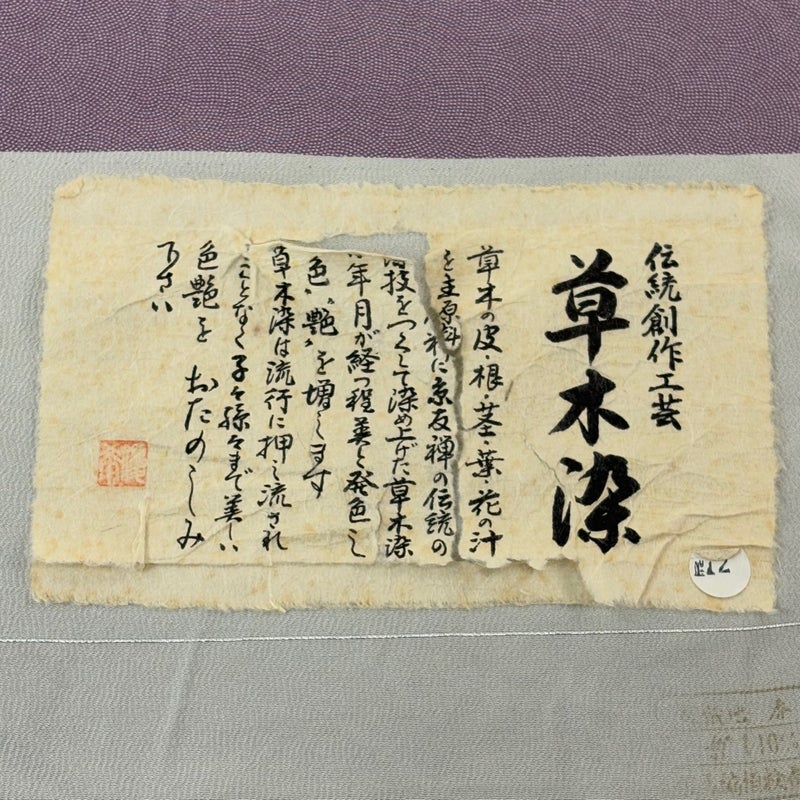 伝統創作工芸
草木染
草木の皮・根・茎・葉・花の汁
を主原料に京友禅の伝統の
技をつくして染め上げた草木染
年月が経つ程美しく発色し
色”艶”を増します
草木染は流行に押し流され
ことなく子々孫々まで美しい
色艶を おたのしみ
下さい